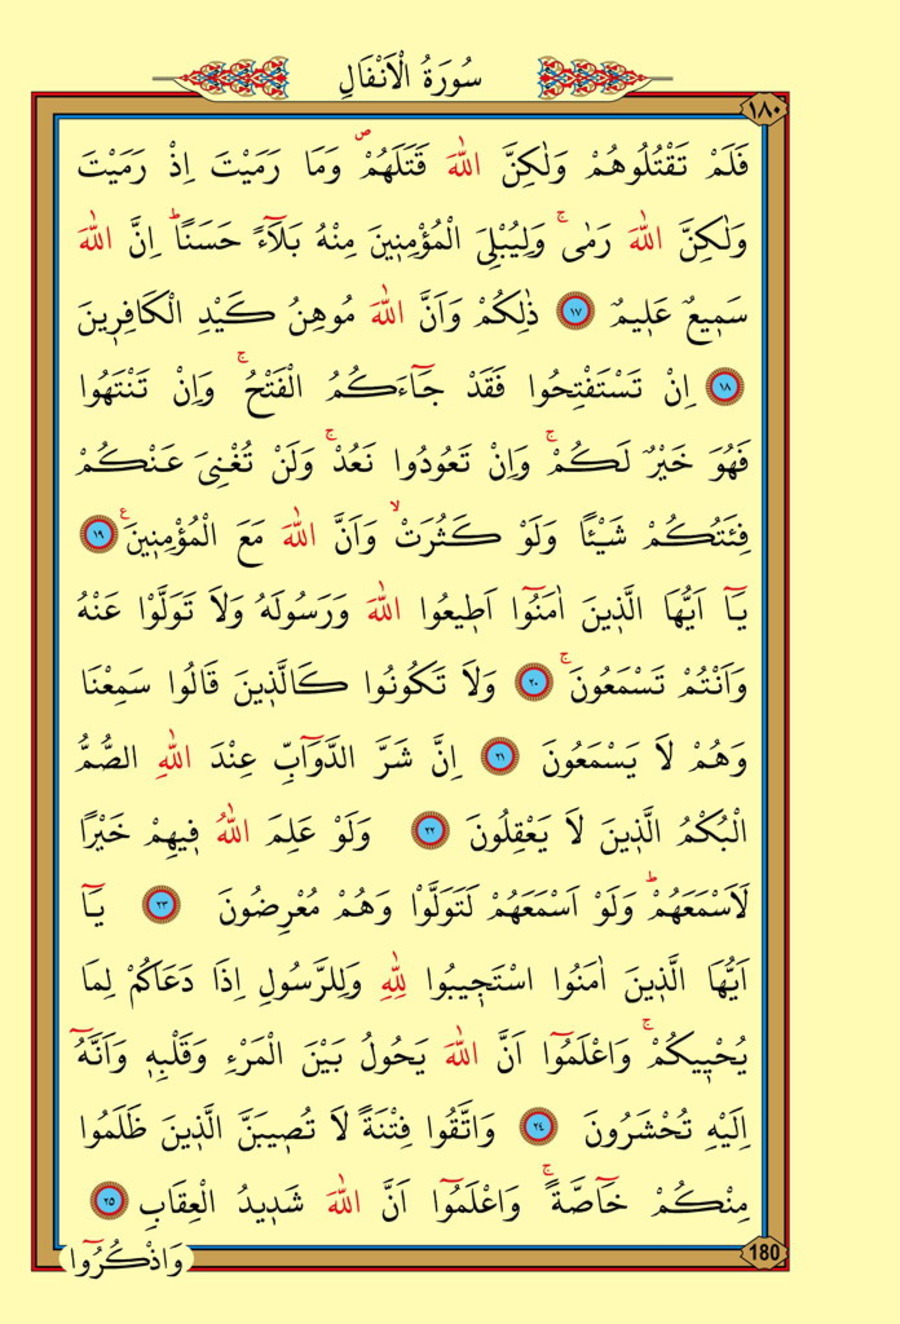 سُورَةُ الْاَنْفَالِ
١٨٠
فَلَمْ تَقْتُلُوهُمْ وَلٰكِنَّ اللّٰهَ قَتَلَهُمْۖ وَمَا رَمَيْتَ اِذْ رَمَيْتَ
وَلٰكِنَّ اللّٰهَ رَمٰىۚ وَلِيُبْلِيَ الْمُؤْمِنٖينَ مِنْهُ بَلَٓاءً حَسَنًاؕ اِنَّ اللّٰهَ
سَمٖيعٌ عَلٖيمٌ ﴿١٧﴾ ذٰلِكُمْ وَاَنَّ اللّٰهَ مُوهِنُ كَيْدِ الْكَافِرٖينَ
﴿١٨﴾ اِنْ تَسْتَفْتِحُوا فَقَدْ جَٓاءَكُمُ الْفَتْحُۚ وَاِنْ تَنْتَهُوا
فَهُوَ خَيْرٌ لَكُمْۚ وَاِنْ تَعُودُوا نَعُدْۚ وَلَنْ تُغْنِيَ عَنْكُمْ
فِئَتُكُمْ شَيْـًٔا وَلَوْ كَثُرَتْۙ وَاَنَّ اللّٰهَ مَعَ الْمُؤْمِنٖينَ ع ﴿١٩﴾
يَٓا اَيُّهَا الَّذٖينَ اٰمَنُٓوا اَطٖيعُوا اللّٰهَ وَرَسُولَهُ وَلَا تَوَلَّوْا عَنْهُ
وَاَنْتُمْ تَسْمَعُونَۚ ﴿٢٠﴾ وَلَا تَكُونُوا كَالَّذٖينَ قَالُوا سَمِعْنَا
وَهُمْ لَا يَسْمَعُونَ ﴿٢١﴾ اِنَّ شَرَّ الدَّوَٓابِّ عِنْدَ اللّٰهِ الصُّمُّ
الْبُكْمُ الَّذٖينَ لَا يَعْقِلُونَ ﴿٢٢﴾ وَلَوْ عَلِمَ اللّٰهُ فٖيهِمْ خَيْرًا
لَاَسْمَعَهُمْؕ وَلَوْ اَسْمَعَهُمْ لَتَوَلَّوْا وَهُمْ مُعْرِضُونَ ﴿٢٣﴾ يَٓا
اَيُّهَا الَّذٖينَ اٰمَنُوا اسْتَجٖيبُوا لِلّٰهِ وَلِلرَّسُولِ اِذَا دَعَاكُمْ لِمَا
يُحْيٖيكُمْۚ وَاعْلَمُٓوا اَنَّ اللّٰهَ يَحُولُ بَيْنَ الْمَرْءِ وَقَلْبِهٖ وَاَنَّهُٓ
اِلَيْهِ تُحْشَرُونَ ﴿٢٤﴾ وَاتَّقُوا فِتْنَةً لَا تُصٖيبَنَّ الَّذٖينَ ظَلَمُوا
مِنْكُمْ خَٓاصَّةًۚ وَاعْلَمُٓوا اَنَّ اللّٰهَ شَدٖيدُ الْعِقَابِ ﴿٢٥﴾
وَاذْكُرُٓوا
180